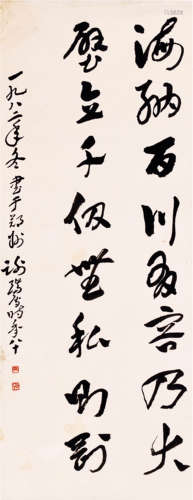 海纳百川有容乃大
壁立千仞无私则刚
一九八二年冬書于郑州
谢瑞阶时年八十